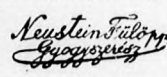 Neustein Fülöp
Gyógyszerész